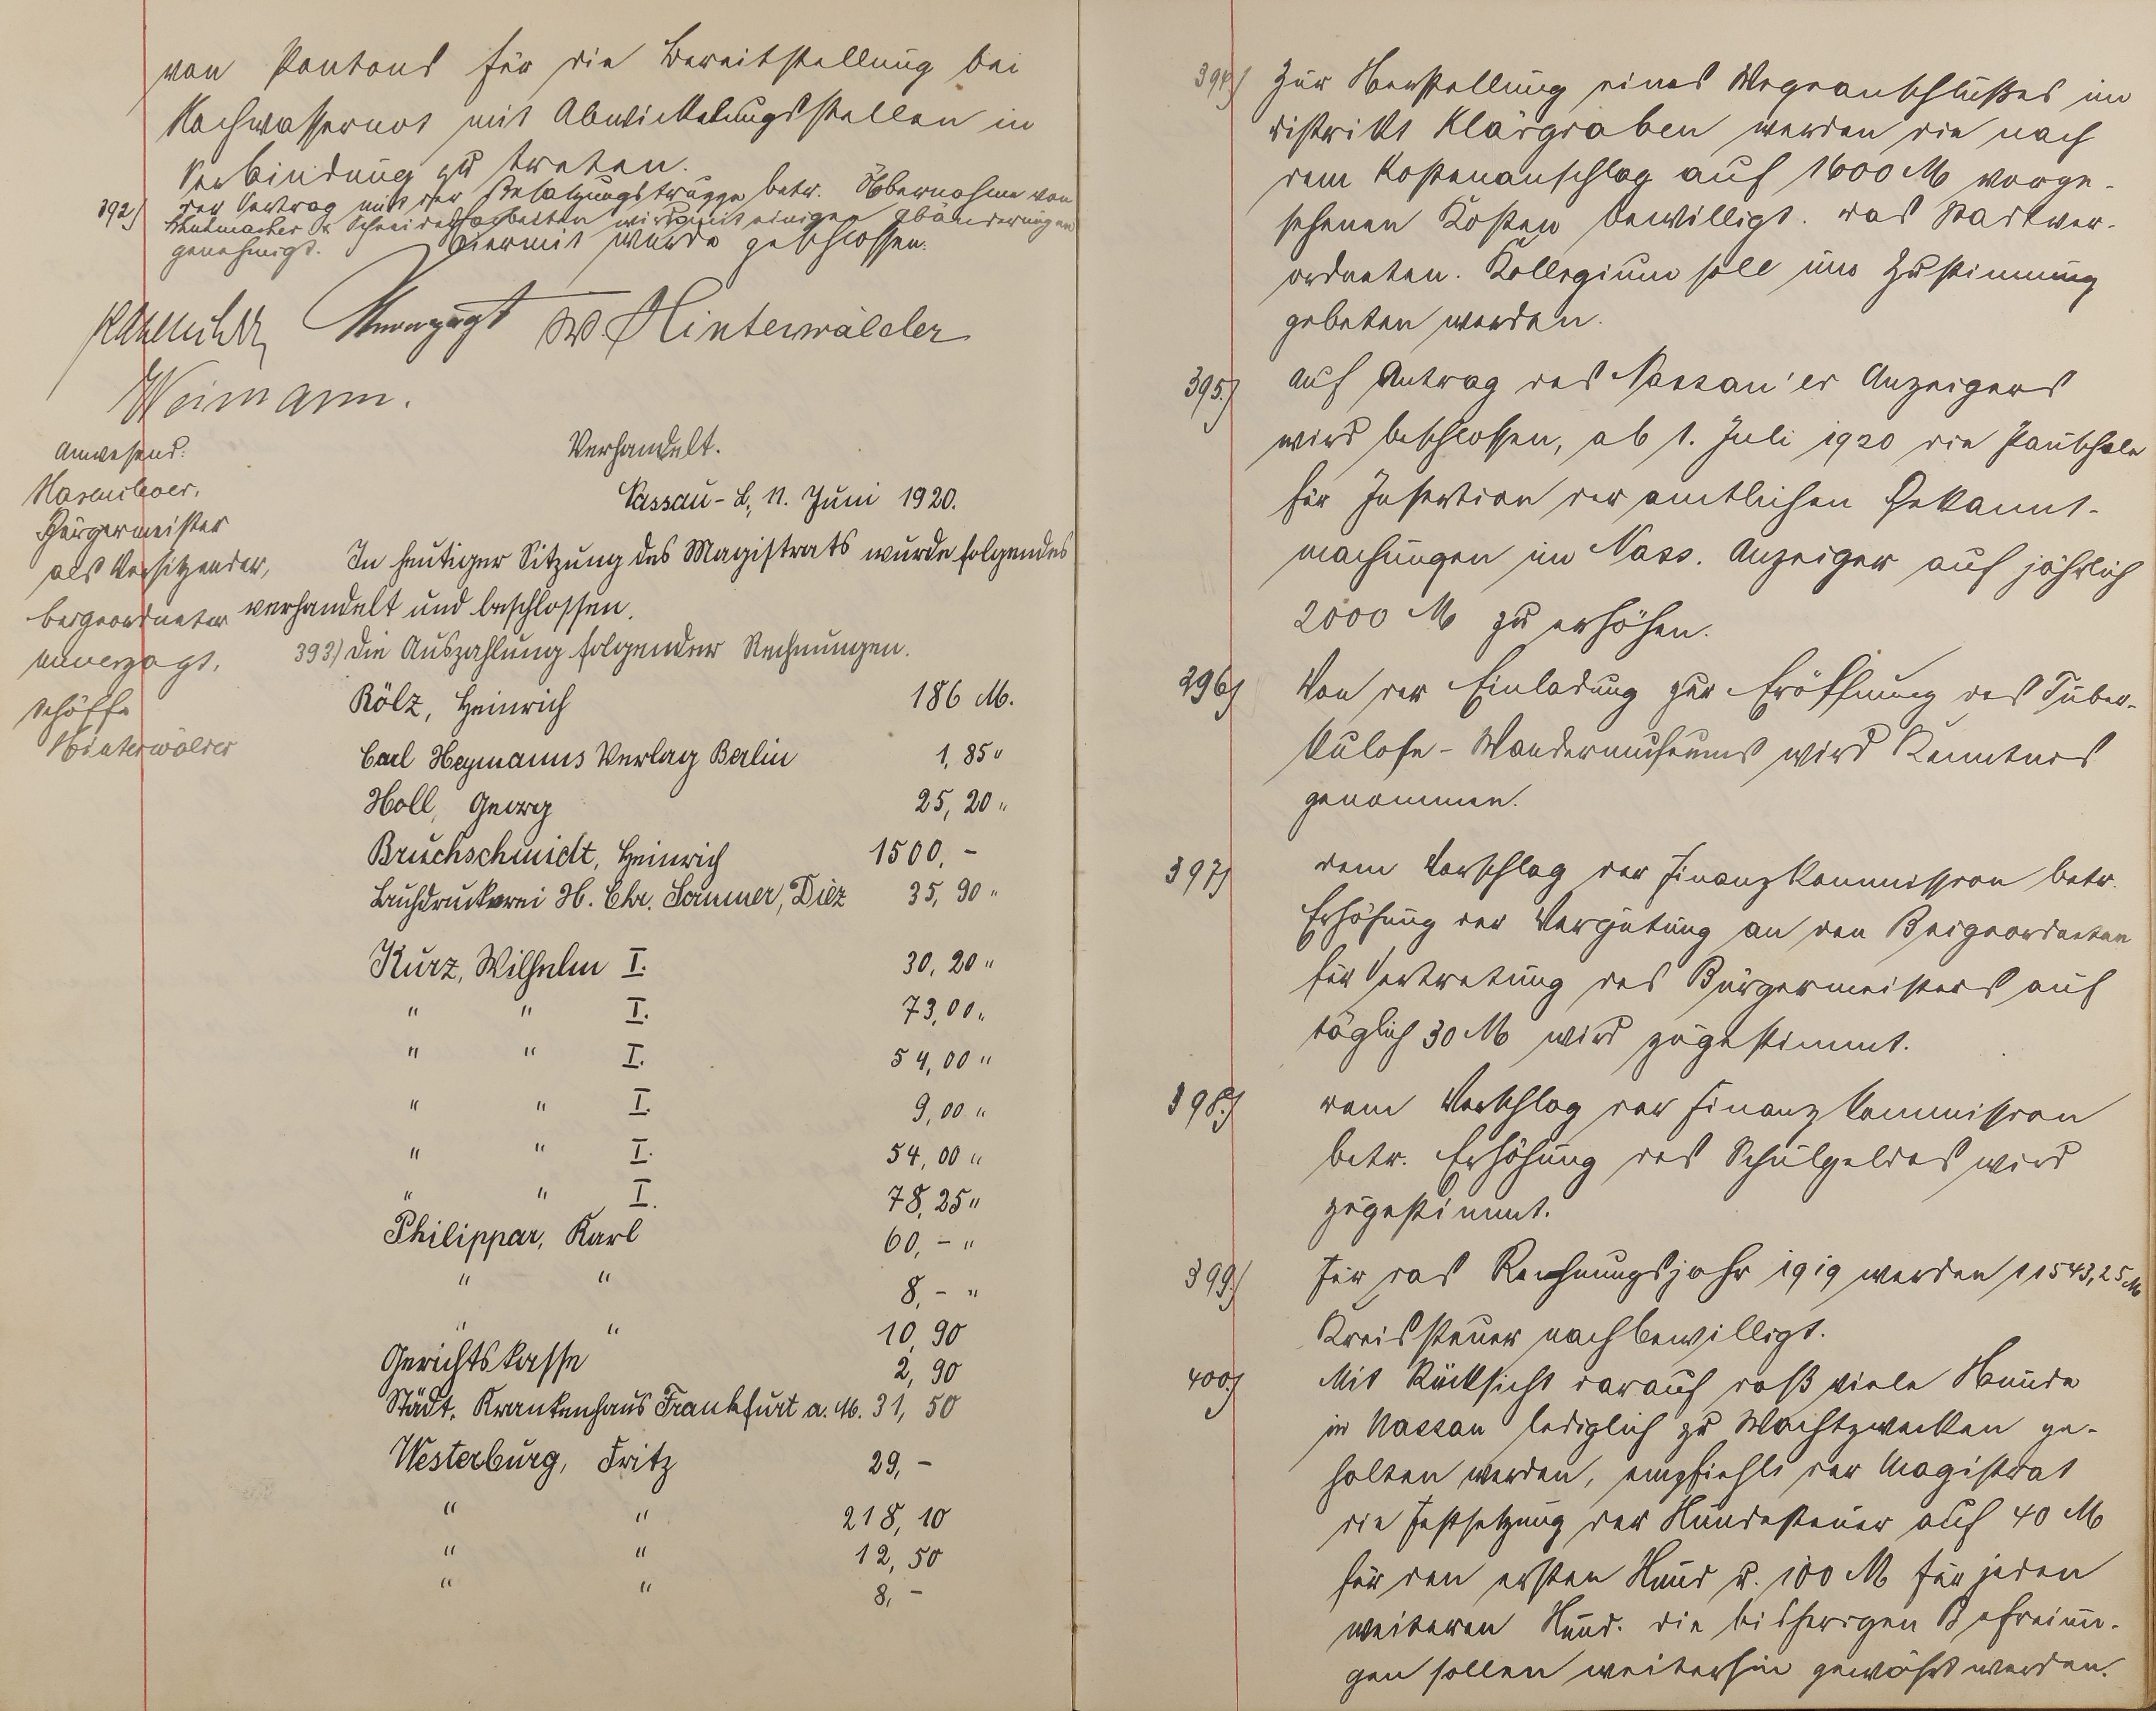 von Pontons für die Bereitstellung bei
Hochwassernot mit Abwickelungsstellen in
Verbindung zu treten.
392) Der Vertrag mit der Besatzungstruppe betr. Übernahme von
Schuhmacher & Schneiderarbeiten wird mit einigen Abänderungen
genehmigt. Hiermit wurde geschlossen.
Unverzagt W. Hinterwälder
Weimann.
Anwesend:
Hasenclever,
Bürgermeister
als Vorsitzender,
beigeordneter
Unverzagt,
Schöffe
Hinterwälder
Verhandelt.
Nassau-L, 11. Juni 1920.
In heutiger Sitzung des Magistrats wurde folgendes
verhandelt und beschlossen.
393) Die Auszahlung folgender Rechnungen.
Bölz, Heinrich 186 M.
Carl Heymanns Verlag Berlin 1,85 "
Holl, Georg 25,20 "
Bruchschmidt, Heinrich 1500,-
Buchdruckerei H. Chr. Sommer, Diez 35,90 "
Kurz, Wilhelm I. 30,20 "
" " I. 73,00 "
" " I. 54,00 "
" " I. 9,00 "
" " I. 54,00 "
" " I. 78,25 "
Philippar, Karl 60,- "
" " 8,- "
" " 10,90
Gerichtskasse 2,90
Städt. Krankenhaus Frankfurt a. M. 31,50
Westerburg, Fritz 29,-
" " 218,10
" " 12,50
" " 8,-
394) Zur Herstellung eines Wegeanschlußes im
Distrikt Klärgraben werden die nach
dem Kostenanschlag auf 1600 M vorge-
sehenen Kosten bewilligt. Das Stadtver-
ordneten. Kollegium soll um Zustimmung
gebeten werden.
395.) Auf Antrag des Nassau'er Anzeigers
wird beschlossen, ab 1. Juli 1920 die Pauschale
für Insertion der amtlichen Bekannt-
machungen im Nass. Anzeiger auf jährlich
2000 M zu erhöhen.
296) Von der Einladung zur Eröffnung des Tuber-
kulose-Wandermuseums wird Kenntnis
genommen.
397) Dem Vorschlag der Finanzkommission betr.
Erhöhung der Vergütung an den Beigeordneten
für Vertretung des Bürgermeisters auf
täglich 30 M wird zugestimmt.
398.) Dem Vorschlag der Finanzkommission
betr. Erhöhung des Schulgeldes wird
zugestimmt.
399.) Für das Rechnungsjahr 1919 werden 11543,25 M
Kreissteuer nachbewilligt.
400.) Mit Rücksicht darauf daß viele Hunde
in Nassau lediglich zu Wachtzwecken ge-
halten werden, empfiehlt der Magistrat
die Festsetzung der Hundesteuer auf 40 M
für den ersten Hund u. 100 M für jeden
weiteren Hund. Die bisherigen Befreiun-
gen sollen weiterhin gewährt werden.